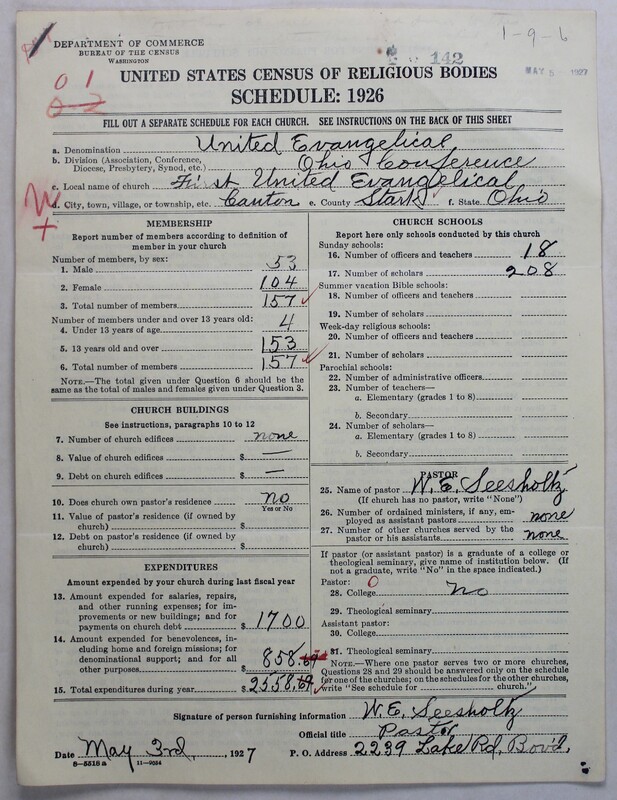 DEPARTMENT OF COMMERCE
BUREAU OF THE CENSUS
WASHINGTON
1-9-6
142
MAY 5 1927
0 1
UNITED STATES CENSUS OF RELIGIOUS BODIES
SCHEDULE: 1926
FILL OUT A SEPARATE SCHEDULE FOR EACH CHURCH. SEE INSTRUCTIONS ON THE BACK OF THIS SHEET
a. Denomination United Evangelical
b. Division (Association, Conference, Diocese, Presbytery, Synod, etc.) Ohio Conference
c. Local name of church First United Evangelical
d. City, town, village, or township, etc. Canton e. County Stark f. State Ohio
MEMBERSHIP
Report number of members according to definition of
member in your church
Number of members, by sex:
1. Male 53
2. Female 104
3. Total number of members 157
Number of members under and over 13 years old:
4. Under 13 years of age 4
5. 13 years old and over 153
6. Total number of members 157
NOTE.—The total given under Question 6 should be the
same as the total of males and females given under Question 3.
CHURCH BUILDINGS
See instructions, paragraphs 10 to 12
7. Number of church edifices none
8. Value of church edifices $ —
9. Debt on church edifices $ —
10. Does church own pastor's residence no
Yes or No
11. Value of pastor's residence (if owned by
church) $
12. Debt on pastor's residence (if owned by
church) $
EXPENDITURES
Amount expended by your church during last fiscal year
13. Amount expended for salaries, repairs,
and other running expenses; for im-
provements or new buildings; and for
payments on church debt $ 1700
14. Amount expended for benevolences, in-
cluding home and foreign missions; for
denominational support; and for all
other purposes $ 858.69
15. Total expenditures during year $ 2558.69
CHURCH SCHOOLS
Report here only schools conducted by this church
Sunday schools:
16. Number of officers and teachers 18
17. Number of scholars 208
Summer vacation Bible schools:
18. Number of officers and teachers
19. Number of scholars
Week-day religious schools:
20. Number of officers and teachers
21. Number of scholars
Parochial schools:
22. Number of administrative officers
23. Number of teachers—
a. Elementary (grades 1 to 8)
b. Secondary
24. Number of scholars—
a. Elementary (grades 1 to 8)
b. Secondary
PASTOR
25. Name of pastor W. E. Seesholtz
(If church has no pastor, write "None")
26. Number of ordained ministers, if any, em-
ployed as assistant pastors none
27. Number of other churches served by the
pastor or his assistants none
If pastor (or assistant pastor) is a graduate of a college or
theological seminary, give name of institution below. (If
not a graduate, write "No" in the space indicated.)
Pastor: 0
28. College no
29. Theological seminary
Assistant pastor:
30. College
31. Theological seminary
NOTE.—Where one pastor serves two or more churches,
Questions 28 and 29 should be answered only on the schedule
for one of the churches; on the schedules for the other churches,
write "See schedule for church."
Signature of person furnishing information W. E. Seesholtz
Official title Pastor
Date May 3rd, 1927 P. O. Address 2239 Lake Rd, Bov'd,
8—5518 a 11—9054